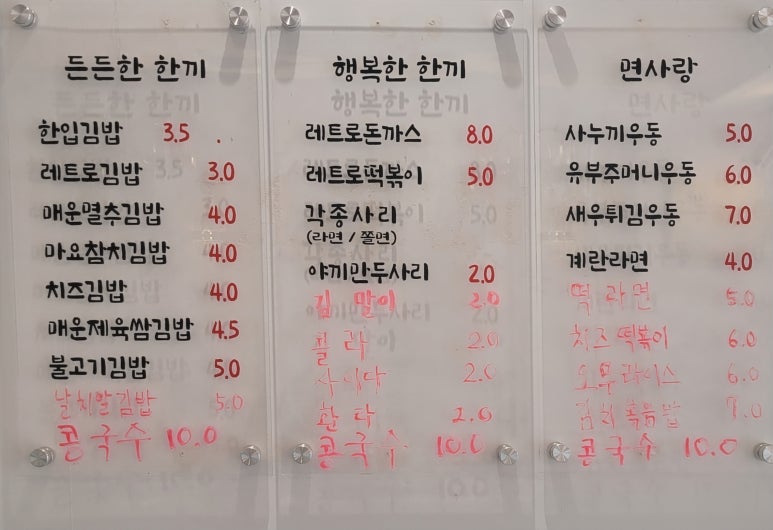 든든한 한끼
한입김밥 3.5 .
레트로김밥 3.0
매운멸추김밥 4.0
마요참치김밥 4.0
치즈김밥 4.0
매운제육쌈김밥 4.5
불고기김밥 5.0
날치알김밥 5.0
콩국수 10.0
행복한 한끼
레트로돈까스 8.0
레트로떡볶이 5.0
각종사리
(라면 / 쫄면)
야끼만두사리 2.0
김말이 2.0
콜라 2.0
사이다 2.0
환타 2.0
콩국수 10.0
면사랑
사누끼우동 5.0
유부주머니우동 6.0
새우튀김우동 7.0
계란라면 4.0
떡라면 5.0
치즈떡볶이 6.0
오무라이스 6.0
김치볶음밥 7.0
콩국수 10.0